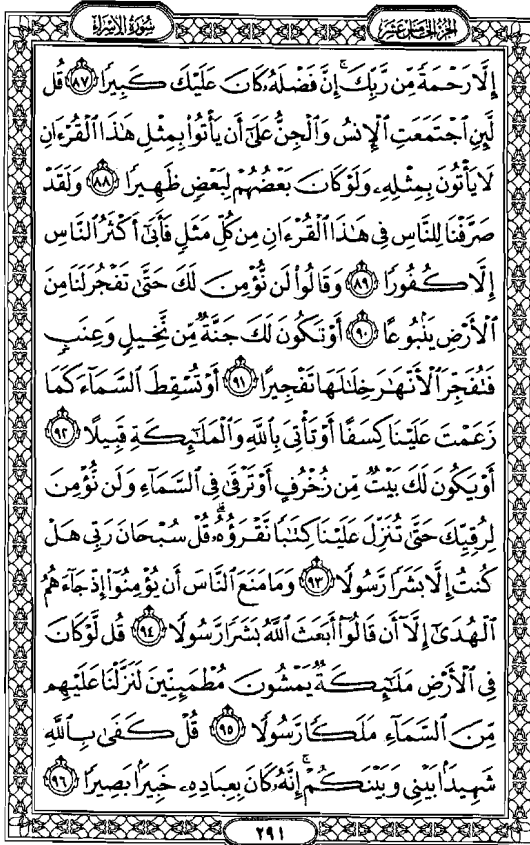 سُورَةُ الإِسْرَاءِ
الجُزْءُ الخَامِسَ عَشَرَ
إِلَّا رَحْمَةً مِّن رَّبِّكَ ۚ إِنَّ فَضْلَهُۥ كَانَ عَلَيْكَ كَبِيرًا ٨٧ قُل
لَّئِنِ ٱجْتَمَعَتِ ٱلْإِنسُ وَٱلْجِنُّ عَلَىٰٓ أَن يَأْتُوا۟ بِمِثْلِ هَـٰذَا ٱلْقُرْءَانِ
لَا يَأْتُونَ بِمِثْلِهِۦ وَلَوْ كَانَ بَعْضُهُمْ لِبَعْضٍ ظَهِيرًا ٨٨ وَلَقَدْ
صَرَّفْنَا لِلنَّاسِ فِى هَـٰذَا ٱلْقُرْءَانِ مِن كُلِّ مَثَلٍ فَأَبَىٰٓ أَكْثَرُ ٱلنَّاسِ
إِلَّا كُفُورًا ٨٩ وَقَالُوا۟ لَن نُّؤْمِنَ لَكَ حَتَّىٰ تَفْجُرَ لَنَا مِنَ
ٱلْأَرْضِ يَنۢبُوعًا ٩٠ أَوْ تَكُونَ لَكَ جَنَّةٌ مِّن نَّخِيلٍ وَعِنَبٍ
فَتُفَجِّرَ ٱلْأَنْهَـٰرَ خِلَـٰلَهَا تَفْجِيرًا ٩١ أَوْ تُسْقِطَ ٱلسَّمَآءَ كَمَا
زَعَمْتَ عَلَيْنَا كِسَفًا أَوْ تَأْتِىَ بِٱللَّهِ وَٱلْمَلَـٰٓئِكَةِ قَبِيلًا ٩٢
أَوْ يَكُونَ لَكَ بَيْتٌ مِّن زُخْرُفٍ أَوْ تَرْقَىٰ فِى ٱلسَّمَآءِ وَلَن نُّؤْمِنَ
لِرُقِيِّكَ حَتَّىٰ تُنَزِّلَ عَلَيْنَا كِتَـٰبًا نَّقْرَؤُهُۥ ۗ قُلْ سُبْحَانَ رَبِّى هَلْ
كُنتُ إِلَّا بَشَرًا رَّسُولًا ٩٣ وَمَا مَنَعَ ٱلنَّاسَ أَن يُؤْمِنُوٓا۟ إِذْ جَآءَهُمُ
ٱلْهُدَىٰٓ إِلَّآ أَن قَالُوٓا۟ أَبَعَثَ ٱللَّهُ بَشَرًا رَّسُولًا ٩٤ قُل لَّوْ كَانَ
فِى ٱلْأَرْضِ مَلَـٰٓئِكَةٌ يَمْشُونَ مُطْمَئِنِّينَ لَنَزَّلْنَا عَلَيْهِم
مِّنَ ٱلسَّمَآءِ مَلَكًا رَّسُولًا ٩٥ قُلْ كَفَىٰ بِٱللَّهِ
شَهِيدًۢا بَيْنِى وَبَيْنَكُمْ ۚ إِنَّهُۥ كَانَ بِعِبَادِهِۦ خَبِيرًۢا بَصِيرًا ٩٦
٢٩١